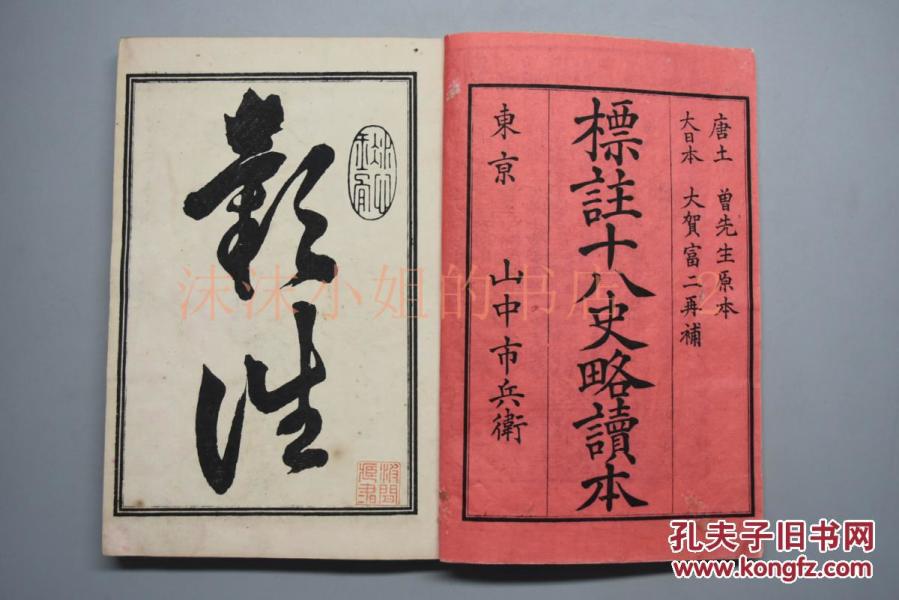 唐土 曽先生原本
大日本 大賀富二再補
標註十八史略讀本
東京 山中市兵衛
彰往
沫沫小姐的书店
孔夫子旧书网
www.kongfz.com